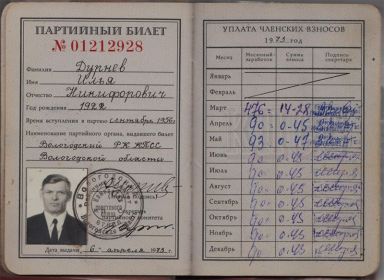 ПАРТИЙНЫЙ БИЛЕТ
№ 01212928
Фамилия Дурнев
Имя Илья
Отчество Никифорович
Год рождения 1922
Время вступления в партию сентябрь 1956 г.
Наименование партийного органа, выдавшего билет
Вологодский РК КПСС
Вологодской области
Дата выдачи 6 апреля 1973 г.
УПЛАТА ЧЛЕНСКИХ ВЗНОСОВ
1973 год
Месяц Месячный заработок Сумма взноса Подпись секретаря
Январь
Февраль
Март 476= 14-28
Апрель 90= 0-45
Май 93 0-47
Июнь 90= 0-45
Июль 90= 0-45
Август 90= 0-45
Сентябрь 90= 0-45
Октябрь 90= 0-45
Ноябрь 90= 0-45
Декабрь 90= 0-45